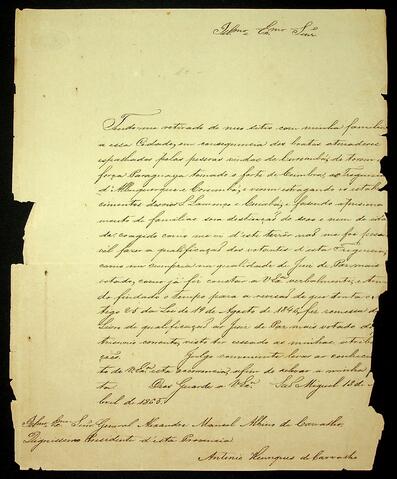 Illmo. Exmo. Snr.
Tendo-me retirado de meu sitio com minha familia
a essa Cidade, em consequencia dos boatos aterradores
espalhados pelas pessoas vindas de Corumbá, de terem
força Paraguaya tomado o forte de Coimbra, as Freguesias
d'Albuquerque e Corumbá, e virem estragando os estabe-
cimentos
e fazendo aprisiona-
mento de familias sem destinção de sexo e nem de ida-
de, coagido como me vi d'este terror não me foi possi-
vel fazer a qualificação dos votantes d'esta Freguesia,
como me cumpria na qualidade de Juiz de Paz mais
votado, como já fiz constar a V.Exa. verbalmente; e ten-
do findado o tempo para a revisão de que trata o ar-
tigo 25 da Lei de 19 de Agosto de 1846, fiz remessa do
Livro de qualificação ao Juiz de Paz mais votado do
trienio visto ter cessado as minhas atribui-
ções. Julgo conveniente levar ao conhecimen-
to de V.Exa. esta occorrencia, afim de salvar a minha
Deos Guarde a V.Exa. São Miguel 18 de
bril de 1865.
Illmo. Exmo. Snr. General Alexandre Manoel Albino de Carvalho,
Dignissimo Presidente d'esta Provincia
Antonio Henriques de Carvalho